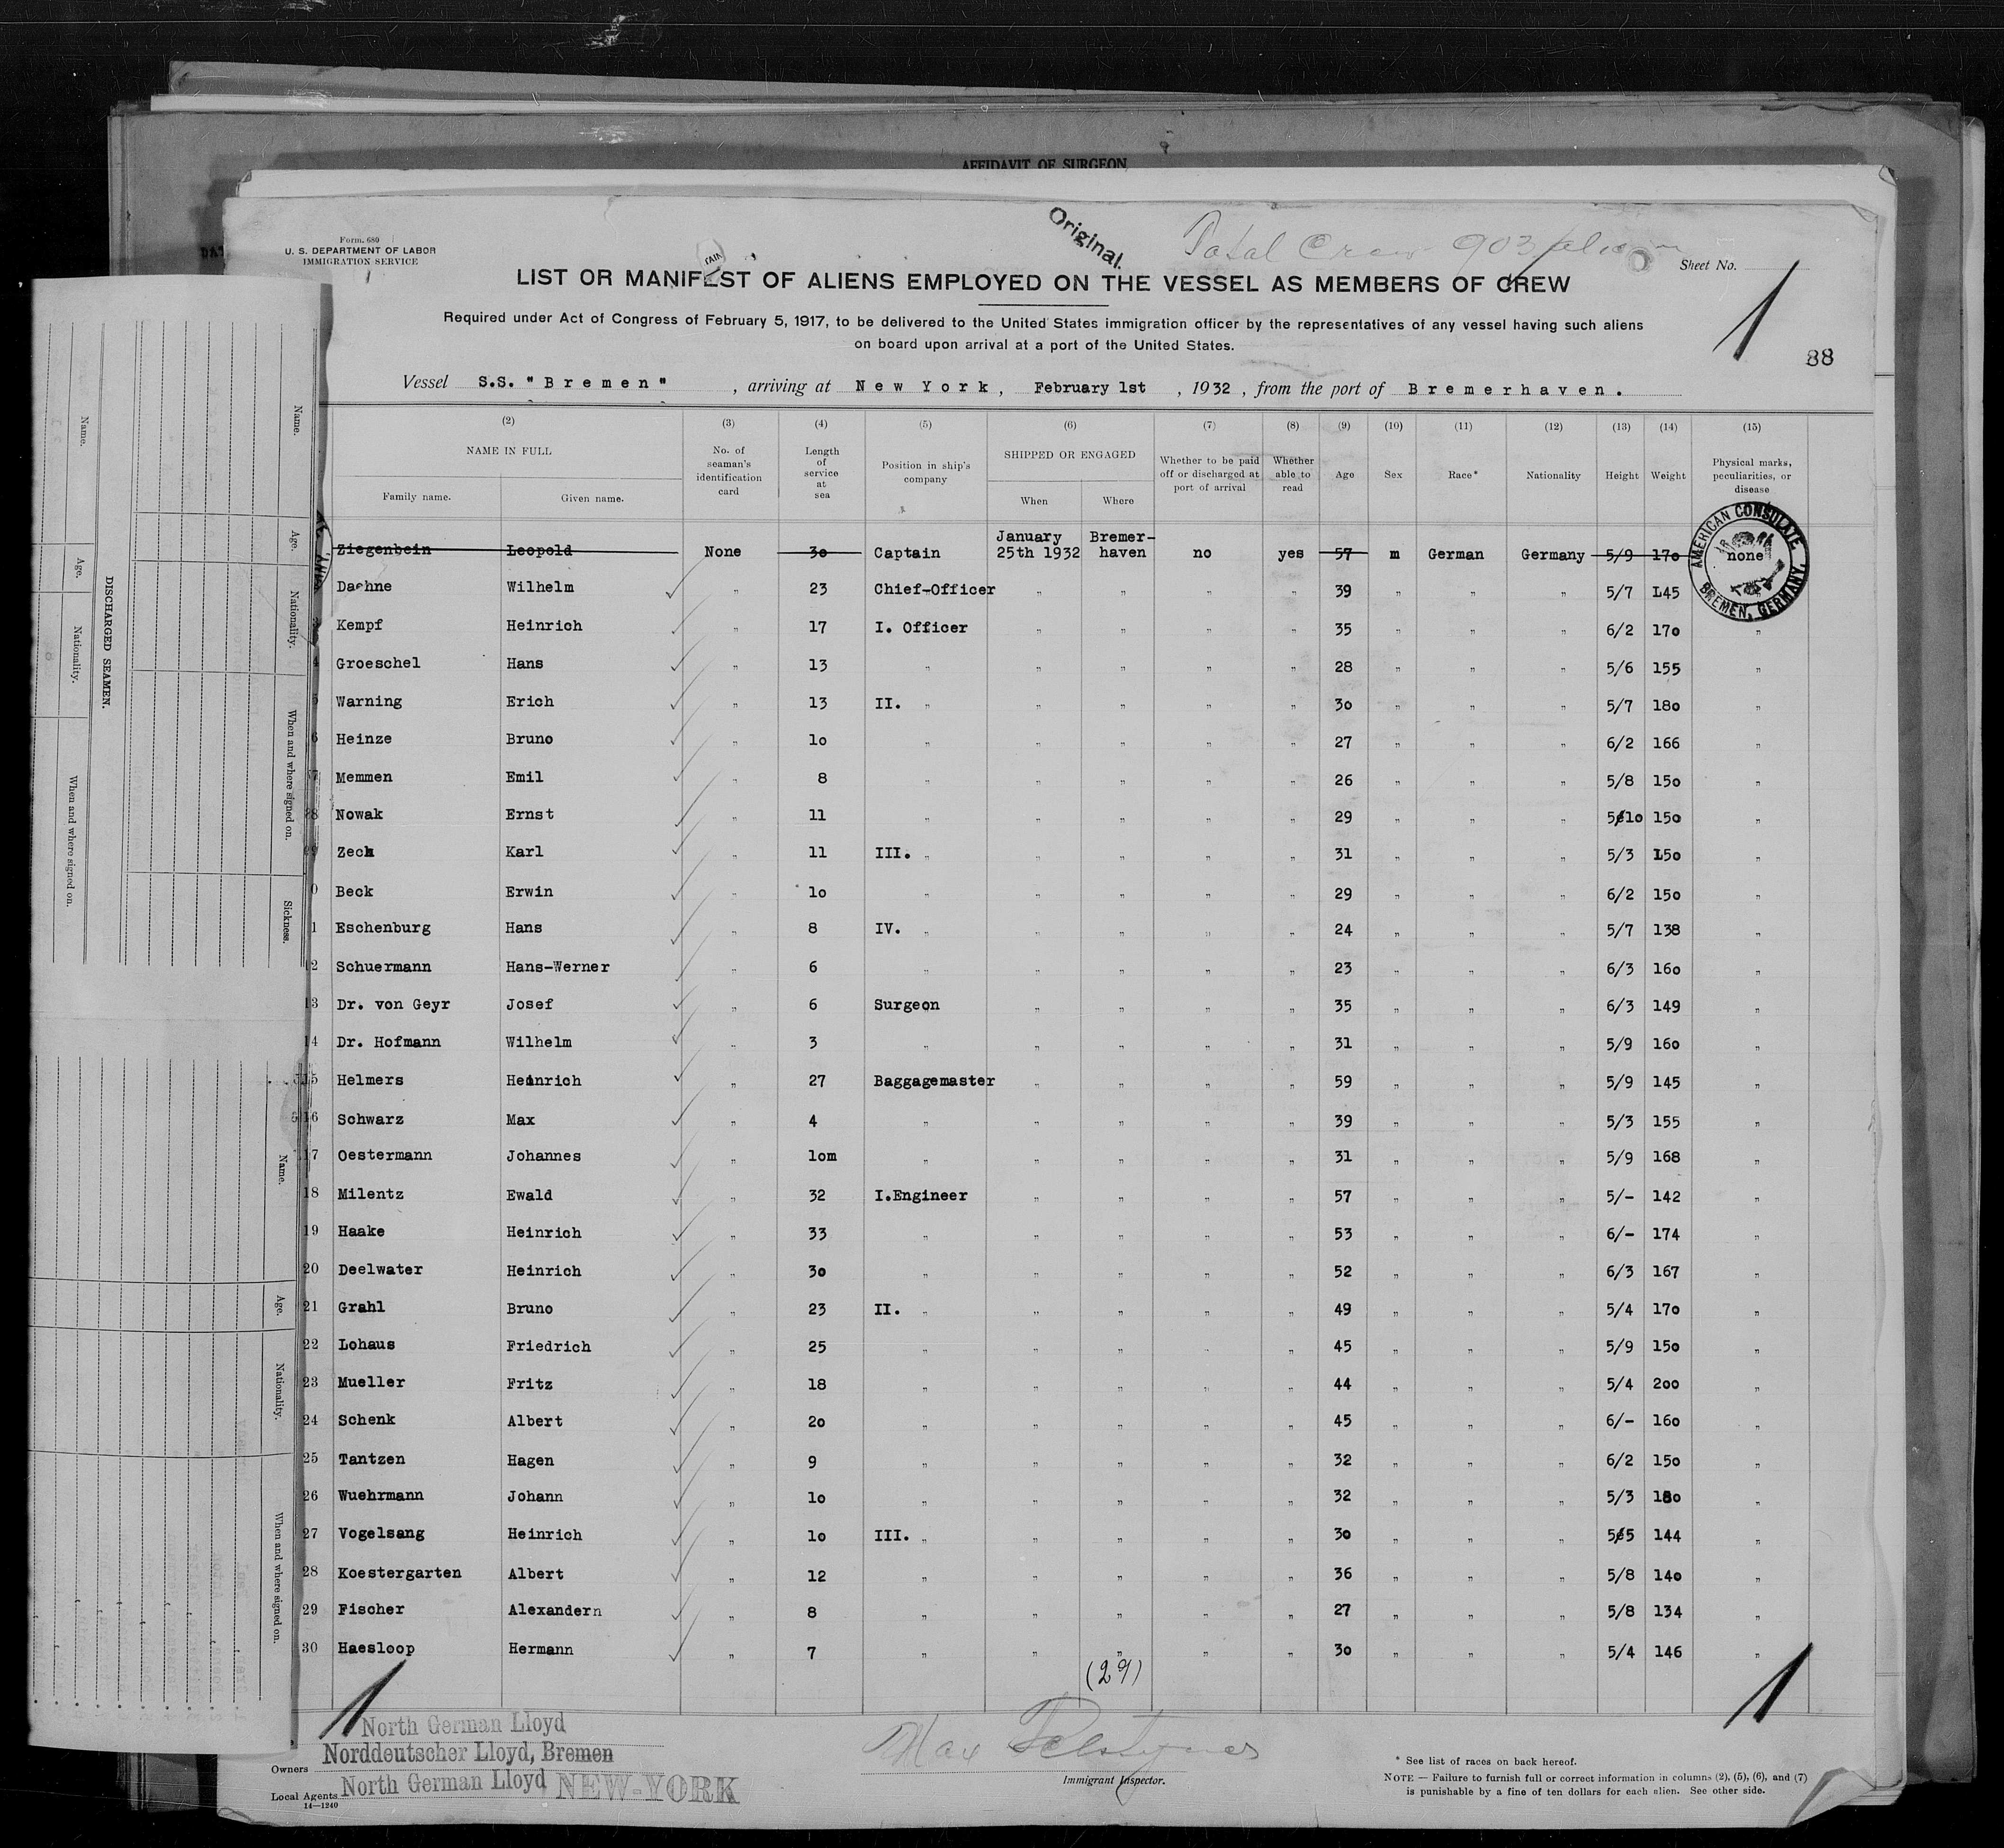 AFFIDAVIT OF SURGEON
Original.
Total Crew 903 alien
Form. 680
U. S. DEPARTMENT OF LABOR
IMMIGRATION SERVICE
Sheet No. 1
LIST OR MANIFEST OF ALIENS EMPLOYED ON THE VESSEL AS MEMBERS OF CREW
Required under Act of Congress of February 5, 1917, to be delivered to the United States immigration officer by the representatives of any vessel having such aliens
on board upon arrival at a port of the United States.
88
Vessel S.S. "Bremen", arriving at New York, February 1st, 1932, from the port of Bremerhaven.
(2) (3) (4) (5) (6) (7) (8) (9) (10) (11) (12) (13) (14) (15)
NAME IN FULL
Family name. Given name.
No. of seaman's identification card
Length of service at sea
Position in ship's company
SHIPPED OR ENGAGED
When Where
Whether to be paid off or discharged at port of arrival
Whether able to read
Age
Sex
Race*
Nationality
Height
Weight
Physical marks, peculiarities, or disease
AMERICAN CONSULATE BREMEN, GERMANY.
Ziegenbein Leopold None 30 Captain January 25th 1932 Bremerhaven no yes 57 m German Germany 5/9 170 none
Daehne Wilhelm " 23 Chief-Officer " " " " 39 " " " 5/7 L45 "
3 Kempf Heinrich " 17 I. Officer " " " " 35 " " " 6/2 170 "
4 Groeschel Hans " 13 " " " " " 28 " " " 5/6 155 "
5 Warning Erich " 13 II. " " " " " 30 " " " 5/7 180 "
6 Heinze Bruno " 10 " " " " " 27 " " " 6/2 166 "
7 Memmen Emil " 8 " " " " " 26 " " " 5/8 150 "
8 Nowak Ernst " 11 " " " " " 29 " " " 5/10 150 "
9 Zech Karl " 11 III. " " " " " 31 " " " 5/3 150 "
0 Beck Erwin " 10 " " " " " 29 " " " 6/2 150 "
1 Eschenburg Hans " 8 IV. " " " " " 24 " " " 5/7 138 "
12 Schuermann Hans-Werner " 6 " " " " " 23 " " " 6/3 160 "
13 Dr. von Geyr Josef " 6 Surgeon " " " " 35 " " " 6/3 149 "
14 Dr. Hofmann Wilhelm " 3 " " " " " 31 " " " 5/9 160 "
15 Helmers Heinrich " 27 Baggagemaster " " " " 59 " " " 5/9 145 "
16 Schwarz Max " 4 " " " " " 39 " " " 5/3 155 "
17 Oestermann Johannes " 10m " " " " " 31 " " " 5/9 168 "
18 Milentz Ewald " 32 I.Engineer " " " " 57 " " " 5/- 142 "
19 Haake Heinrich " 33 " " " " " 53 " " " 6/- 174 "
20 Deelwater Heinrich " 30 " " " " " 52 " " " 6/3 167 "
21 Grahl Bruno " 23 II. " " " " " 49 " " " 5/4 170 "
22 Lohaus Friedrich " 25 " " " " " 45 " " " 5/9 150 "
23 Mueller Fritz " 18 " " " " " 44 " " " 5/4 200 "
24 Schenk Albert " 20 " " " " " 45 " " " 6/- 160 "
25 Tantzen Hagen " 9 " " " " " 32 " " " 6/2 150 "
26 Wuehrmann Johann " 10 " " " " " 32 " " " 5/3 180 "
27 Vogelsang Heinrich " 10 III. " " " " " 30 " " " 5/5 144 "
28 Koestergarten Albert " 12 " " " " " 36 " " " 5/8 140 "
29 Fischer Alexandern " 8 " " " " " 27 " " " 5/8 134 "
30 Haesloop Hermann " 7 " " " " " 30 " " " 5/4 146 "
(29)
1 1
North German Lloyd
Norddeutscher Lloyd, Bremen
Owners
Local Agents North German Lloyd NEW-YORK
14—1240
Max
Immigrant Inspector.
* See list of races on back hereof.
NOTE — Failure to furnish full or correct information in columns (2), (5), (6), and (7)
is punishable by a fine of ten dollars for each alien. See other side.
DISCHARGED SEAMEN.
Name. Age. Nationality. When and where signed on.
Name. Age. Nationality. When and where signed on. Sickness.
Name. Age. Nationality. When and where signed on.